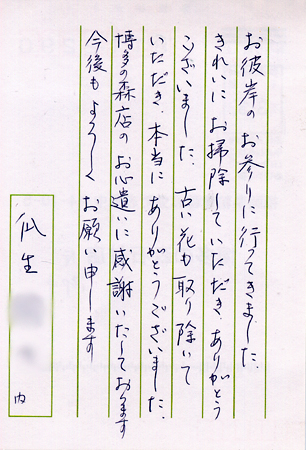 お彼岸のお参りに行ってきました。
きれいに、お掃除していただき、ありがとう
ございました。古い花も取り除いて
いただき、本当にありがとうございました。
博多の森店のお心遣いに感謝いたしております
今後もよろしくお願い申します
瓜生
内